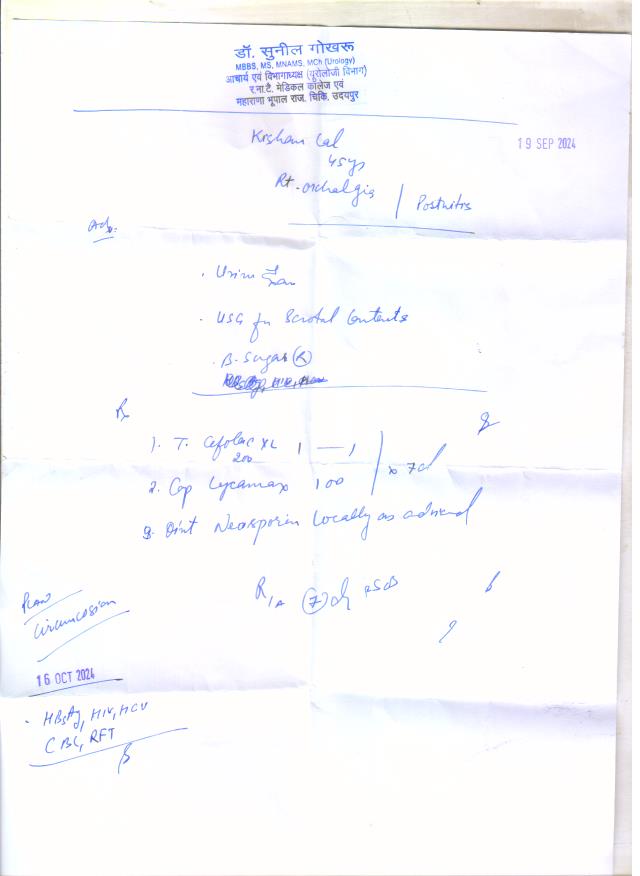 डॉ. सुनील गोखरू
MBBS, MS, MNAMS, MCh (Urology)
आचार्य एवं विभागाध्यक्ष (यूरोलोजी विभाग)
र.ना.टै. मेडिकल कॉलेज एवं
महाराणा भूपाल राज. चिकि. उदयपुर
19 SEP 2024
Krshan Lal
45y
Rt. orchalgia / Posthitis
Adv:
. Urine
. USG for Scrotal Contents
. B. Sugar (R)
Rx
1. T. Cefolac XL 1 — 1
200
x 7d
2. Cap Lycamax 100
3. Oint Neosporin Locally as advised
R/A (7) d
PLAN
Circumcision
16 OCT 2024
- HBsAg, HIV, HCV
CBC, RFT